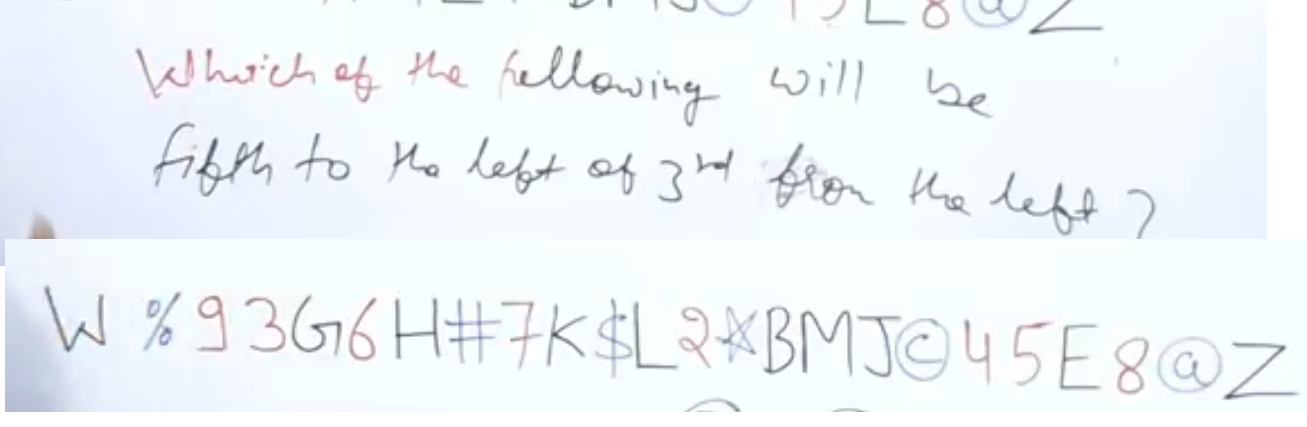 BMJ©45E8@Z
Which of the following will be
fifth to the left of 3rd from the left?
W%93G6H#7K$L2☆BMJ©45E8@Z